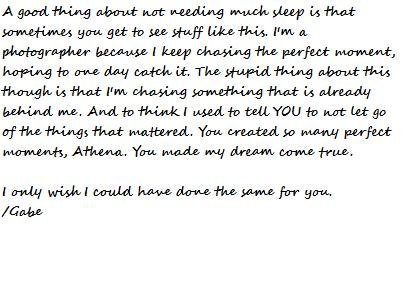 A good thing about not needing much sleep is that
sometimes you get to see stuff like this. I'm a
photographer because I keep chasing the perfect moment,
hoping to one day catch it. The stupid thing about this
though is that I'm chasing something that is already
behind me. And to think I used to tell YOU to not let go
of the things that mattered. You created so many perfect
moments, Athena. You made my dream come true.

I only wish I could have done the same for you.
/Gabe